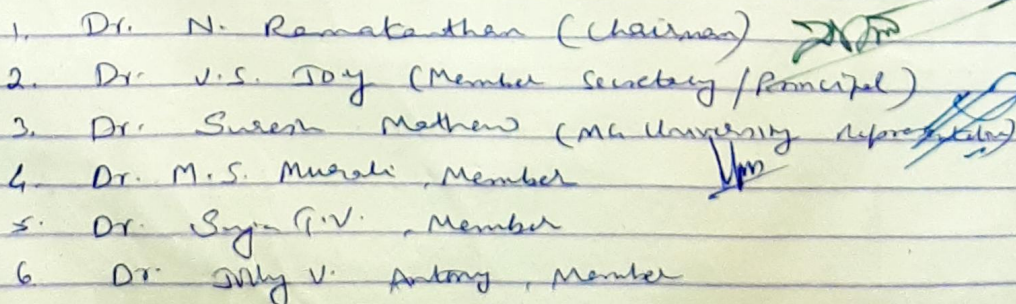 1. Dr. N. Ramakanthan (Chairman)
2. Dr. V.S. Joy (Member Secretary/Principal)
3. Dr. Suresh Mathew (MG University Representative)
4. Dr. M.S. Murali, Member
5. Dr. G.V., Member
6. Dr. Jolly V. Antony, Member